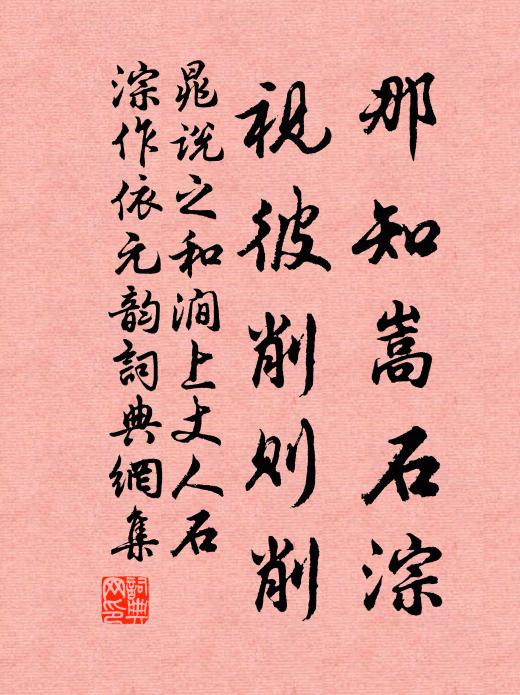 那知嵩石淙
視彼削則削
晁说之和澗上丈人石
淙作依元韵詞典網集
詞典网印